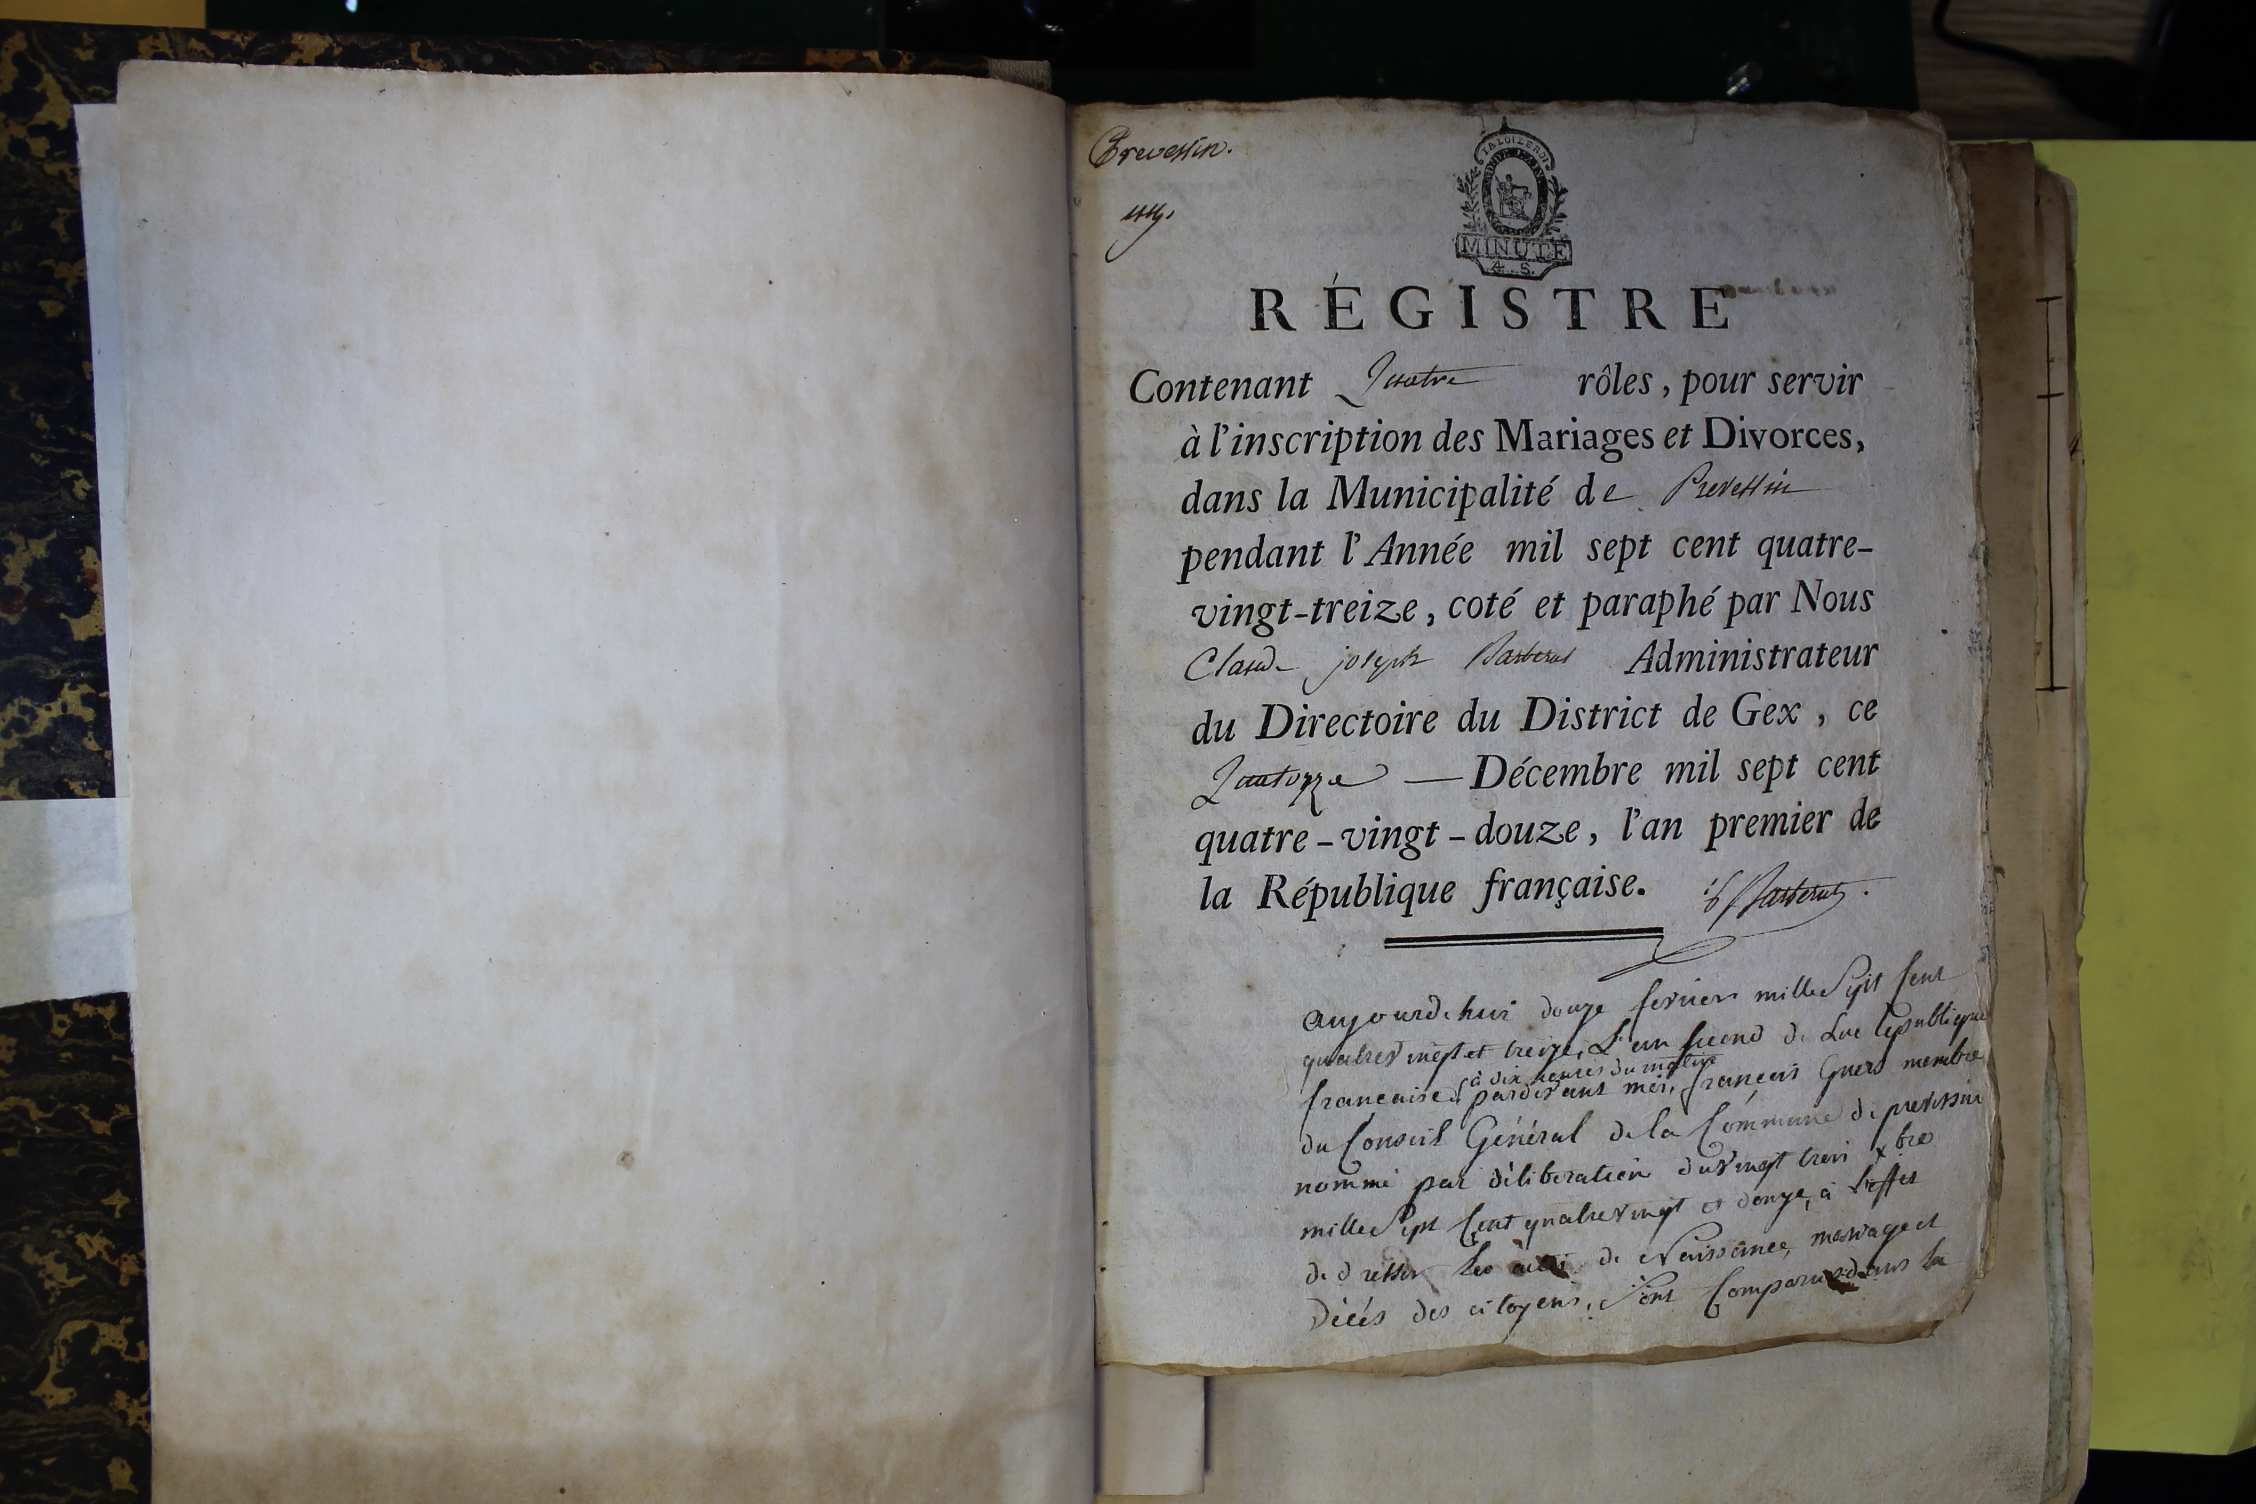 Prevessin.
LA LOI LE ROI
MINUTE
4. S.
RÉGISTRE
Contenant Quatre rôles, pour servir
à l'inscription des Mariages et Divorces,
dans la Municipalité de Prevessin
pendant l'Année mil sept cent quatre-
vingt-treize, coté et paraphé par Nous
Claude joseph Barberat Administrateur
du Directoire du District de Gex, ce
Quatorze — Décembre mil sept cent
quatre-vingt-douze, l'an premier de
la République française.
Barberat
aujourdhui douze fevrier mille Sept Cent
quatrevingt et treize, L'an second de Lae Republique
à dix heures du matin
francaise, pardevant moi, françois Guers membre
du Conseil Général de la Commune de prevessin
nommé par déliberation du vingt trois xbre
mille Sept Cent quatrevingt et douze, à l'effet
de dresser Les actes de Naissance, mariage et
Décés des citoyens, Sont Comparus dans la